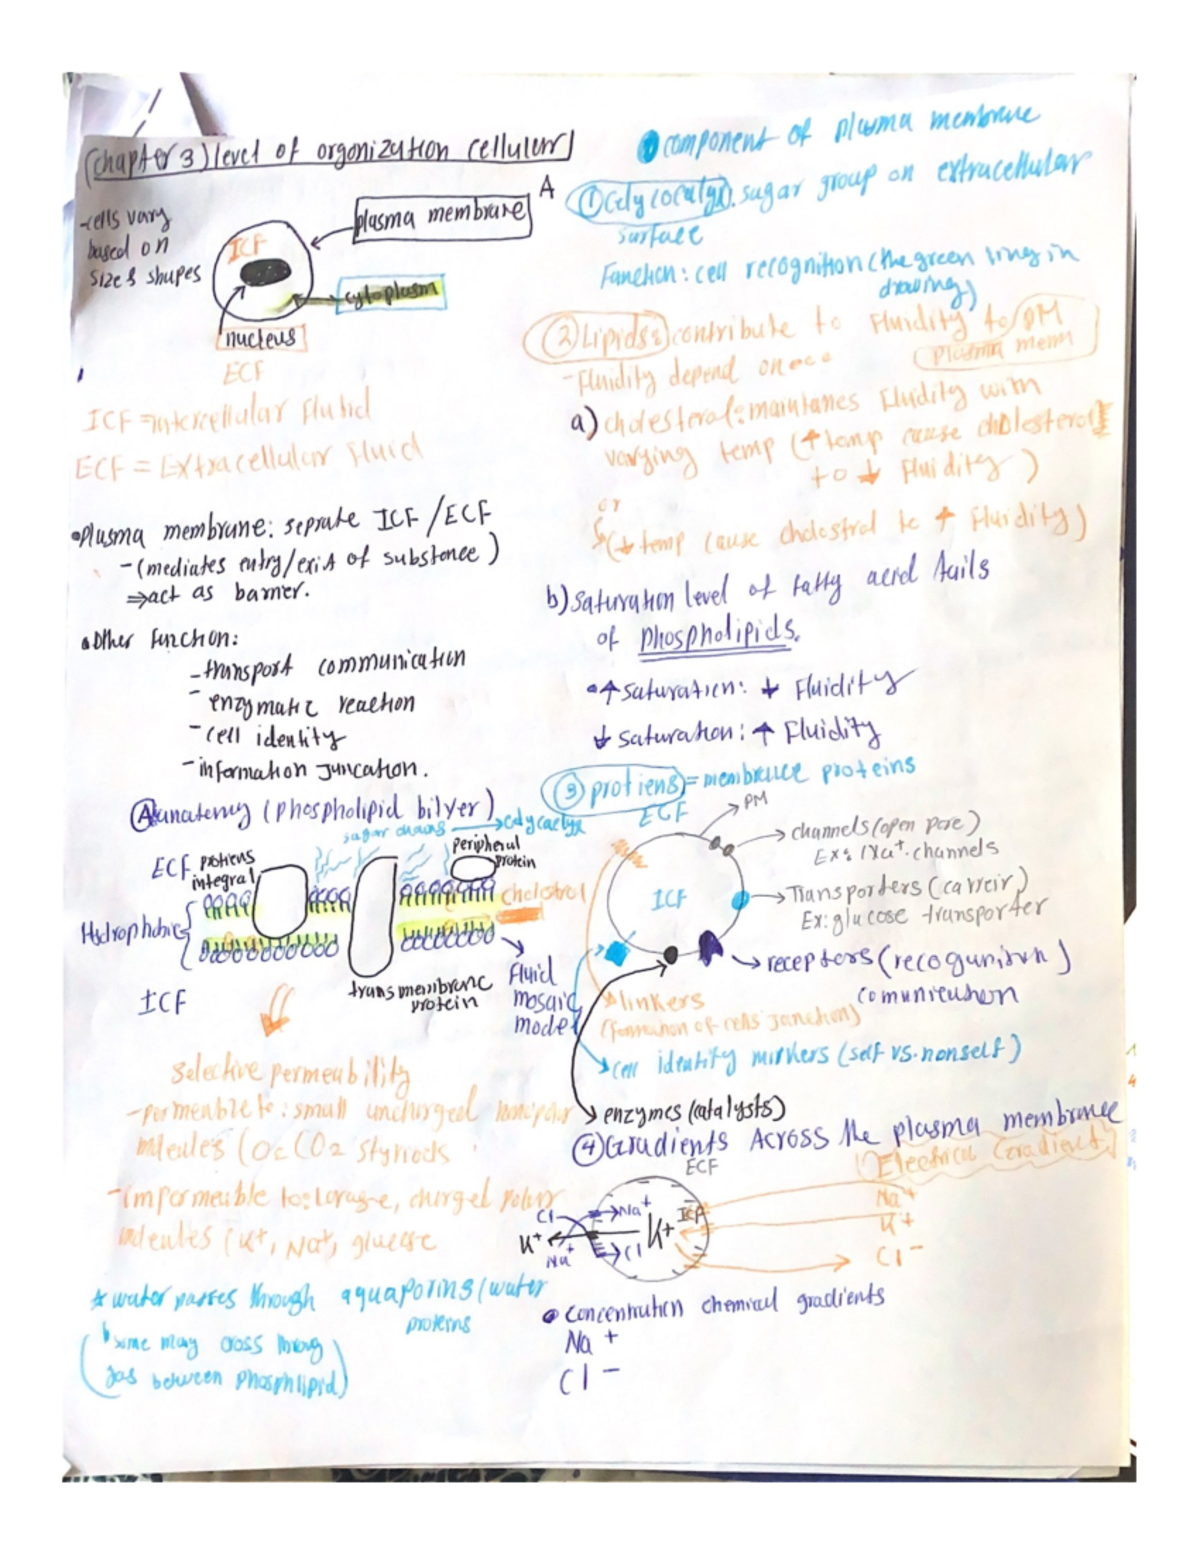 (Chapter 3) level of orgonization cellular
A
-cells vary
based on
size & shapes
ICF
plasma membrane
cytoplasm
nucleus
ECF
ICF = intercellular Fluid
ECF = Extracellular Fluid
•Plasma membrane: seprate ICF/ECF
-(mediates entry/exit of substance)
⇒act as barrier.
•Other Function:
-transport communication
- enzymatic reaction
- cell identity
- information juncation.
(A) anatemy (phospholipid bilyer)
sugar chains → calycaelyx
ECF
protiens
integral
peripherul
protein
cholestrol
Hydrophobic
ICF
transmembrane
protein
Fluid
mosaic
model
selective permeability
-permeable to: small uncharged nonpolar
molecules (O2 CO2 styriods
-impermeable to: large, charged polar
molecules (K+, Na+, glucose
* water passes through aquaporins (water
proteins
some may cross throug
gas between phosphlipid)
•component of plasma membrane
① Calycocalyx. sugar group on extracellular
surface
Function: cell recognition (the green lines in
drawing)
② Lipids: contribute to Fluidity to PM
plasma mem
-Fluidity depend on...
a) cholesteral: maintanes Fludity with
varying temp (↑temp cause cholesterol
to ↓ Fluidity)
or
↳(↓ temp cause cholestrol to ↑ Fluidity)
b) Saturation level of fatty acid tails
of phospholipids.
•↑ saturation: ↓ Fluidity
↓ saturation: ↑ Fluidity
③ protiens = membrance proteins
ECF
PM
channels (open pore)
Ex: Na+ channels
ICF
Transporters (carreir)
Ex: glucose transporter
receptors (recogunisun)
comunication
linkers
(formation of cells janction)
cell identity markers (self vs. nonself)
enzymes (catalysts)
④ Gradients Across the plasma membrance
ECF
① Electrical Gradient
Cl- → Na+ K+ ICF
K+ Na+ → Cl
Na+
K+
Cl-
• concentration chemical gradients
Na +
Cl -